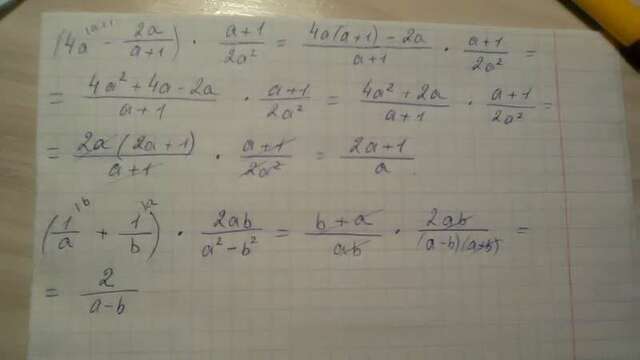 (4a^{|a+1} - \frac{2a}{a+1}) · \frac{a+1}{2a^2} = \frac{4a(a+1) - 2a}{a+1} · \frac{a+1}{2a^2} =
= \frac{4a^2 + 4a - 2a}{a+1} · \frac{a+1}{2a^2} = \frac{4a^2 + 2a}{a+1} · \frac{a+1}{2a^2} =
= \frac{2a(2a+1)}{a+1} · \frac{a+1}{2a^2} = \frac{2a+1}{a}.
(\frac{1}{a}^{|b} + \frac{1}{b}^{|a}) · \frac{2ab}{a^2-b^2} = \frac{b+a}{ab} · \frac{2ab}{(a-b)(a+b)} =
= \frac{2}{a-b}